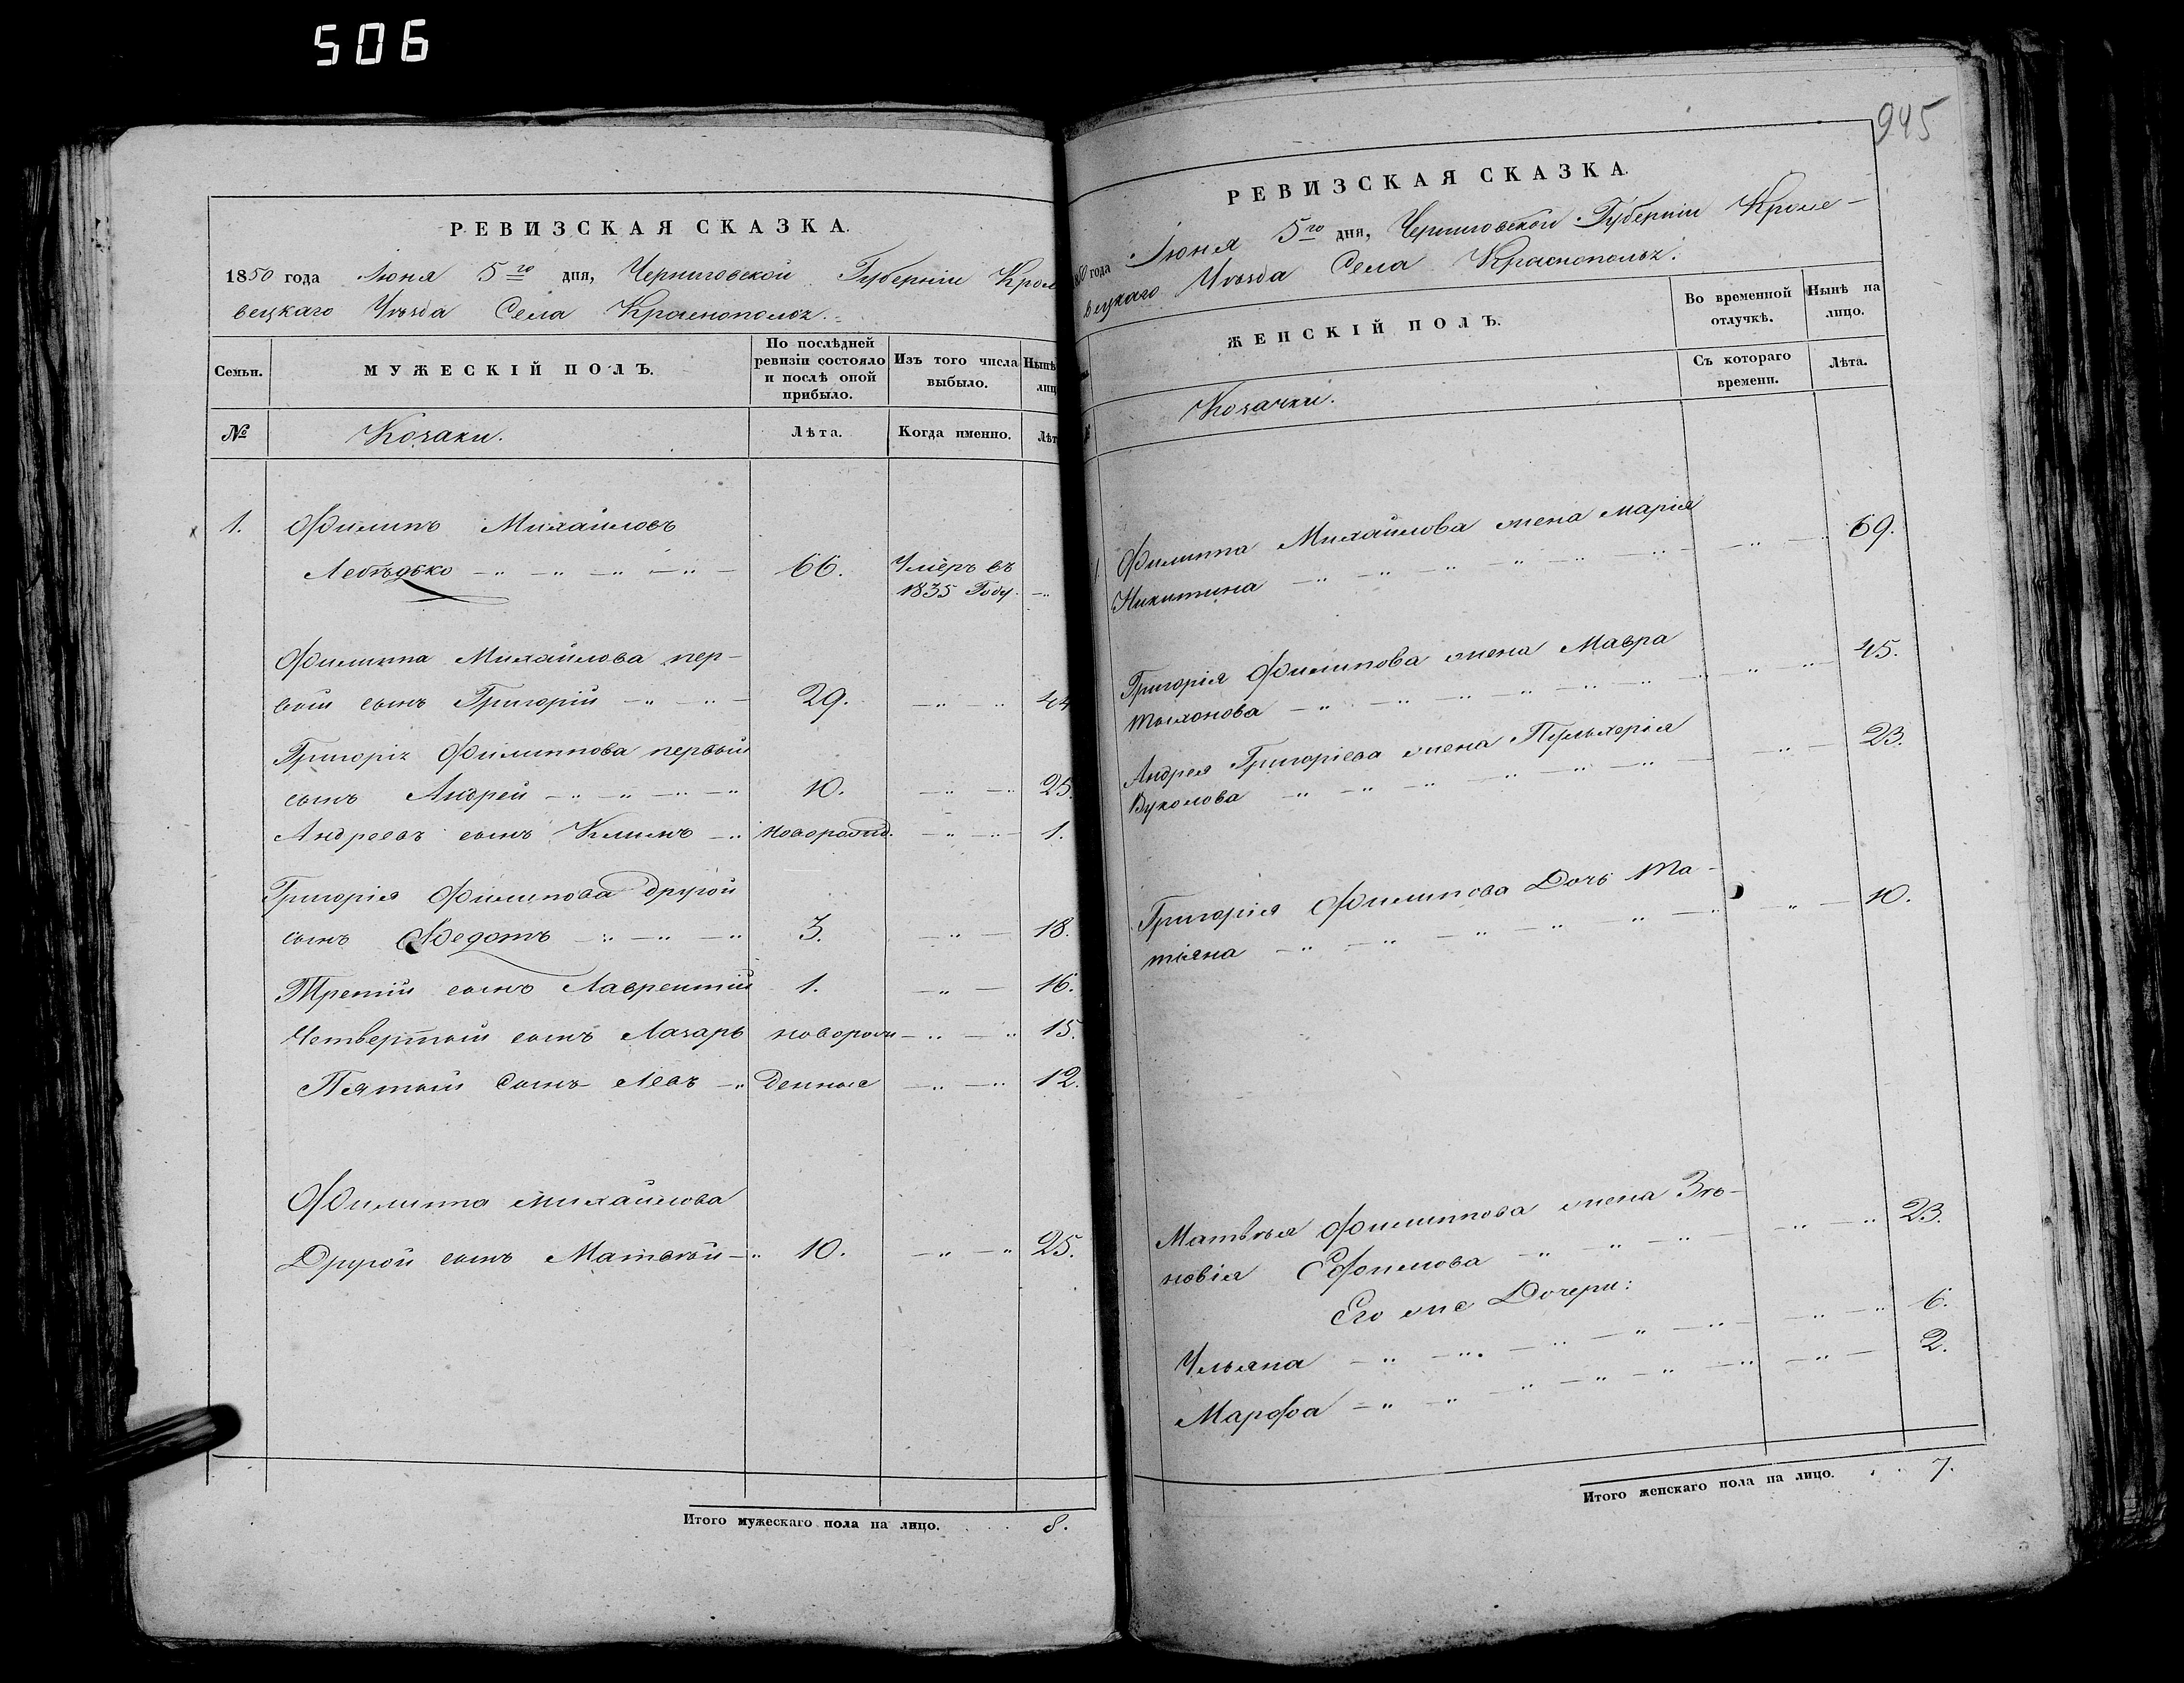 506
945
РЕВИЗСКАЯ СКАЗКА.
1850 года Июня 5го дня, Черниговской Губерніи Крол
вецкаго Уѣзда Села Краснополья.
Семьи. МУЖЕСКІЙ ПОЛЪ. По послѣдней ревизіи состояло и послѣ оной прибыло. Изъ того числа выбыло. Нынѣ лиц
№ Козаки. Лѣта. Когда именно. Лѣт
1. Филипъ Михайловъ
Лебѣдько 66. Умеръ въ 1835 Году.
Филиппа Михайлова пер-
вый сынъ Григорій 29. 44
Григорія Филиппова первый
сынъ Андрей 10. 25.
Андреевъ сынъ Климъ новорожд. 1.
Григорія Филипова другой
сынъ Федотъ 3. 18.
Третій сынъ Лаврентій 1. 16.
Четвертый сынъ Лазарь новорож 15.
Пятый сынъ Левъ денные 12.
Филиппа Михайлова
Другой сынъ Матвѣй 10. 25.
Итого мужескаго пола на лицо. 8.
РЕВИЗСКАЯ СКАЗКА.
1850 года Июня 5го дня, Черниговской Губерніи Кроле-
вецкаго Уѣзда Села Краснополья.
ЖЕНСКІЙ ПОЛЪ. Во временной отлучкѣ. Нынѣ на лицо.
Съ котораго времени. Лѣта.
№ Козачки.
1 Филиппа Михайлова жена Марія
Никитина 69.
Григорія Филипова жена Мавра
Тихонова 45.
Андрея Григоріева жена Пульхерія
Вуколова 23.
Григорія Филипова Дочь Та-
тіяна 10.
Матвѣя Филиппова жена Зѣ-
новія Ефимова 23.
Его же Дочери:
Ульяна 6.
Марфа 2.
Итого женскаго пола на лицо. 7.